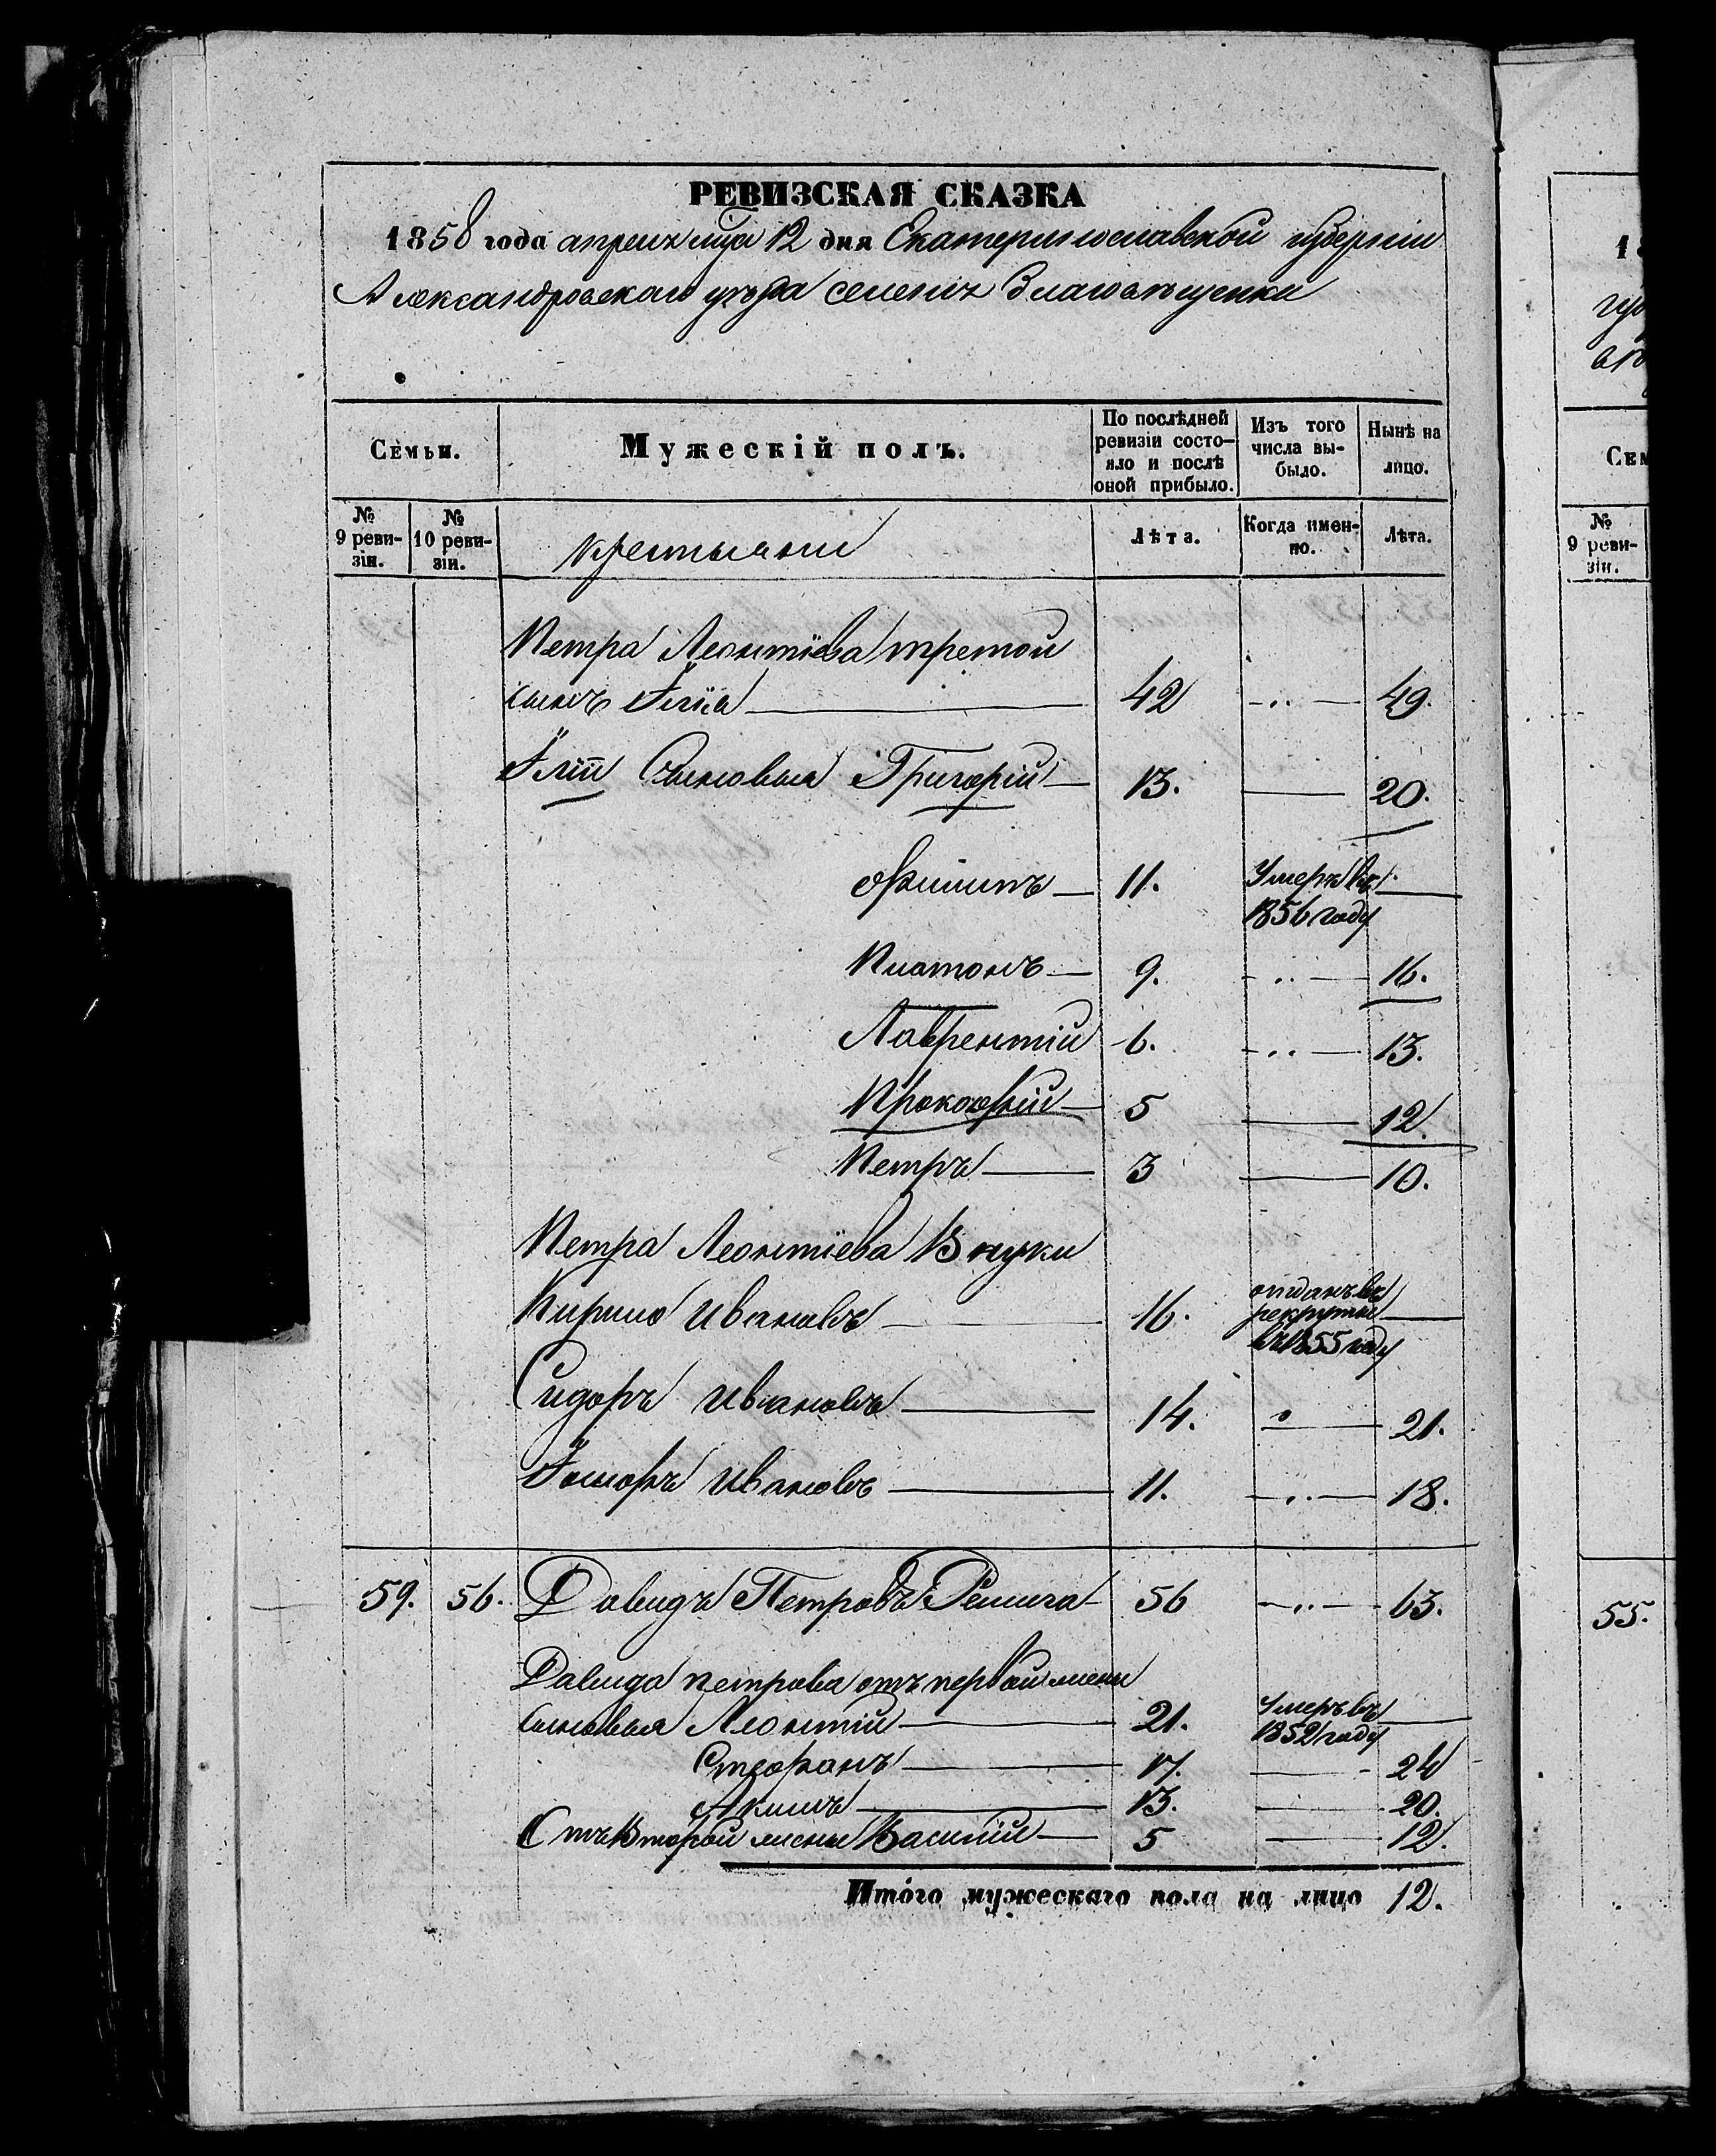 РЕВИЗСКАЯ СКАЗКА
1858 года апреля мца 12 дня Екатеринославской губернии
Александровскаго уѣзда селенія Благовѣщенки
Семьи.
Мужескій полъ.
По послѣдней ревизіи состо-
яло и послѣ
оной прибыло.
Изъ того
числа вы-
было.
Нынѣ на
лицо.
№
9 реви-
зіи.
№
10 реви-
зіи.
крестьяни
Лѣта.
Когда имен-
но.
Лѣта.
Петра Леонтіева третой
сынъ Ілія 42 49.
Іліи Сыновья Григорій 13. 20.
Филипъ 11. Умеръ въ
1856 году
Платонъ 9. 16.
Лаврентій 6. 13.
Прокофій 5 12.
Петръ 3 10.
Петра Леонтіева Внуки
Кирило Ивановъ 16. отданъ въ
рекруты
въ 1855 году
Сидоръ Ивановъ 14. 21.
Ивановъ 11. 18.
59. 56. Давидъ Петровъ 56 63.
Давида петрова отъ первой жены
сыновья Леонтій 21. Умеръ въ
1852 году
Стефанъ 17. 24
Акимъ 13. 20.
Отъ Второй жены Василій 5 12.
Итого мужескаго пола на лицо 12.
1
Сем
№
9 реви-
зіи.
55.